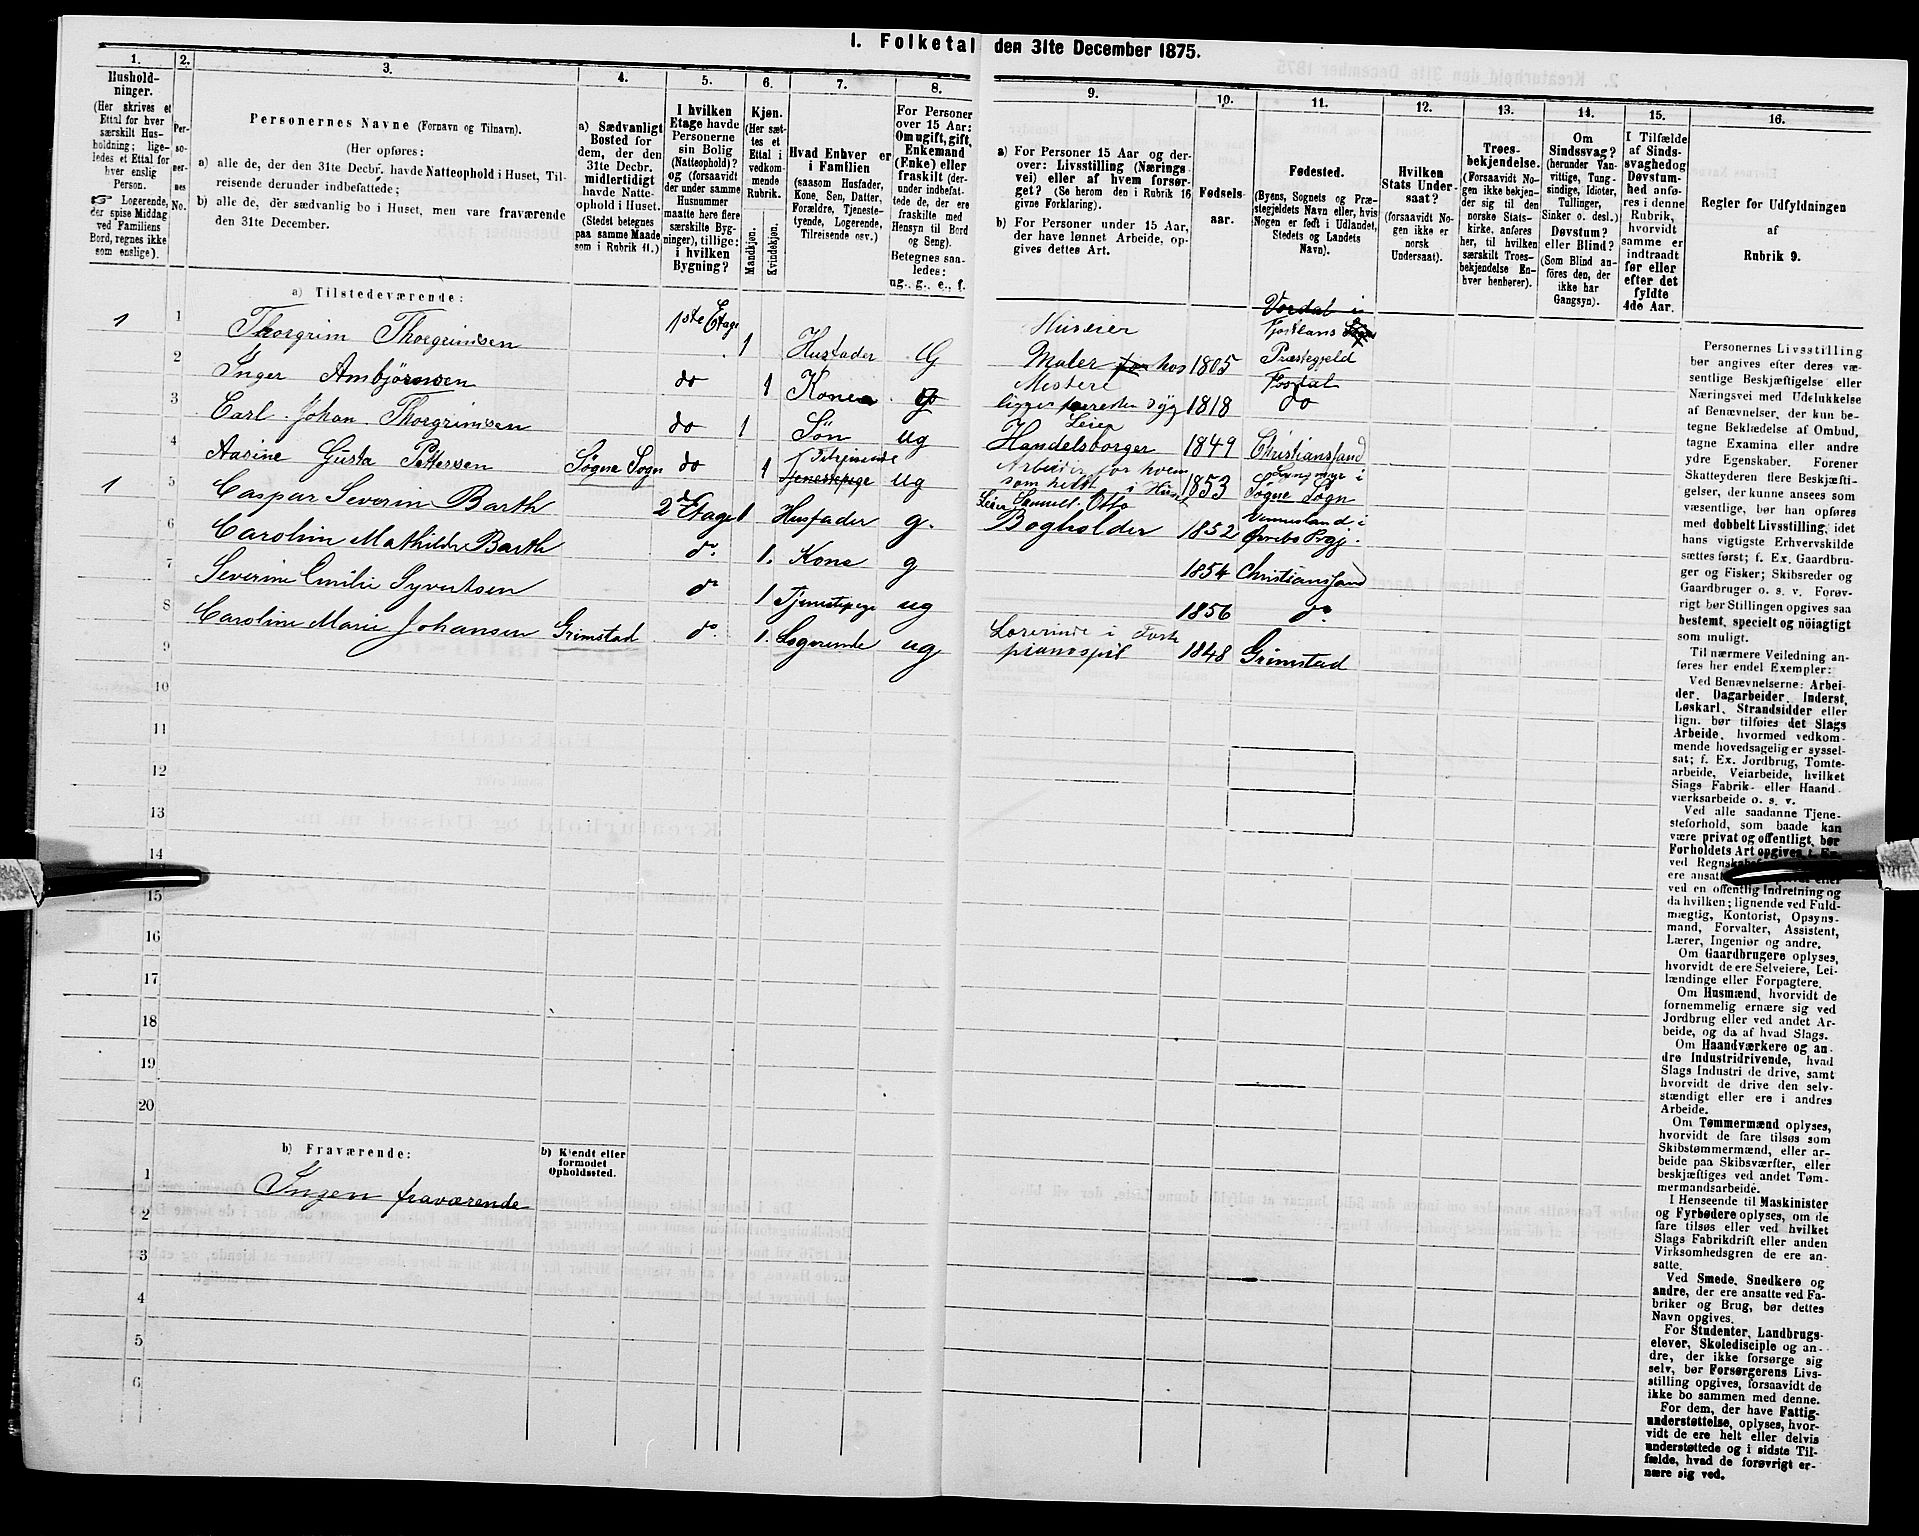 I. Folketal den 31te December 1875.
1.
Hushold-
ninger.
(Her skrives et
Ettal for hver
særskilt Hus-
holdning; lige-
ledes et Ettal for
hver enslig
Person.
☞ Logerende,
der spise Middag
ved Familiens
Bord, regnes ikke
som enslige).
2.
Per-
so-
ner-
nes
No.
3.
Personernes Navne (Fornavn og Tilnavn).
(Her opføres:
a) alle de, der den 31te Decbr. havde Natteophold i Huset, Til-
reisende derunder indbefattede;
b) alle de, der sædvanlig bo i Huset, men vare fraværende
den 31te December.
4.
a) Sædvanligt
Bosted for
dem, der den
31te Decbr.
midlertidigt
havde Natte-
ophold i Huset.
(Stedet betegnes
paa samme Maade
som i Rubrik 11.)
5.
I hvilken
Etage havde
Personerne
sin Bolig
(Natteophold)?
og (forsaavidt
der under samme
Husnummer
maatte høre flere
særskilte Byg-
ninger), tillige:
i hvilken
Bygning?
6.
Kjøn.
(Her sæt-
tes et
Ettal i
vedkom-
mende
Rubrik.
Mandkjøn.
Kvindekjøn.
7.
Hvad Enhver er
i Familien
(saasom Husfader,
Kone, Søn, Datter,
Forældre, Tjeneste-
tyende, Logerende,
Tilreisende osv.)
8.
For Personer
over 15 Aar:
Om ugift, gift,
Enkemand
(Enke) eller
fraskilt (der-
under indbefat-
tede de, der ere
fraskilte med
Hensyn til Bord
og Seng).
Betegnes saa-
ledes:
ug., g., e., f.
9.
a) For Personer 15 Aar og der-
over: Livsstilling (Nærings-
vei) eller af hvem forsør-
get? (Se herom den i Rubrik 16
givne Forklaring).
b) For Personer under 15 Aar,
der have lønnet Arbeide, op-
gives dettes Art.
10.
Fødsels-
aar.
11.
Fødested.
(Byens, Sognets og Præ-
stegjeldets Navn eller, hvis
Nogen er født i Udlandet,
Stedets og Landets
Navn).
12.
Hvilken
Stats Under-
saat?
(forsaavidt No-
gen ikke er
norsk
Undersaat).
13.
Troes-
bekjendelse.
(Forsaavidt No-
gen ikke bekjen-
der sig til den
norske Stats-
kirke, anføres
her, til hvilken
særskilt Troes-
bekjendelse En-
hver henhører).
14.
Om
Sindssvag?
(herunder Van-
vittige, Tung-
sindige, Idioter,
Tullinger,
Sinker o. desl.)
Døvstum?
eller Blind?
(Som Blind an-
føres den, der
ikke har
Gangsyn).
15.
I Tilfælde
af Sinds-
svaghed og
Døvstum-
hed anfø-
res i denne
Rubrik,
hvorvidt
samme er
indtraadt
før eller
efter det
fyldte
4de Aar.
16.
Regler for Udfyldningen
af
Rubrik 9.
a) Tilstedeværende:
1 1 Thorgrim Thorgrimsen 1ste Etage 1 Husfader G Huseier Maler hos Mesteri 1805 Præstegjeld
2 Inger Ambjörnsen do 1 Kone 1818 do
3 Carl Johan Thorgrimsen do 1 Søn ug Handelsborger 1849 Christianssand
4 Aasine Gusta Pettersen Søgne Sogn do 1 Tilreisende Tjenestepige ug Arbeider for hvem 1853 Søgne Sogn
1 5 Caspar Severin Barth 2d Etage 1 Husfader g. Bogholder 1852 Vennesland i Øvrebø Prgj.
6 Carolin Mathilde Barth do 1. Kone g 1854 Christianssand
7 Severine Emilie Syvertsen do 1 Tjenestepige ug 1856 do
8 Caroline Marie Johansen Grimstad do. 1. Logerende ug Lærerinde i Forte pianospil 1848 Grimstad
9
10
11
12
13
14
15
16
17
18
19
20
b) Fraværende:
b) Kjendt eller
formodet
Opholdssted.
1 Ingen fraværende
2
3
4
5
6
Personernes Livsstilling
bør angives efter deres væ-
sentlige Beskjæftigelse eller
Næringsvei med Udelukkelse
af Benævnelser, der kun be-
tegne Beklædelse af Ombud,
tagne Examina eller andre
ydre Egenskaber. Forener
Skatteyderen flere Beskjæfti-
gelser, der kunne ansees som
væsentlige, bør han opføres
med dobbelt Livsstilling, idet
hans vigtigste Erhvervskilde
sættes først; f. Ex. Gaardbru-
ger og Fisker; Skibsreder og
Gaardbruger o. s. v. Forøv-
rigt bør Stillingen opgives saa
bestemt, specielt og nöiagtigt
som muligt.
Til nærmere Veiledning an-
føres her endel Exempler:
Ved Benævnelserne: Arbei-
der, Dagarbeider, Inderst,
Løskarl, Strandsidder eller
lign. bør tilføies det Slags
Arbeide, hvormed vedkom-
mende hovedsagelig er syssel-
sat; f. Ex. Jordbrug, Tomte-
arbeide, Veiarbeide, hvilket
Slags Fabrik- eller Haand-
værksarbeide o. s. v.
Ved alle saadanne Tjene-
steforhold, som baade kan
være privat og offentligt, bør
Forholdets Art opgives
ved
ere ansat
ved en offentlig Indretning og
da hvilken; lignende ved Fuld-
mægtig, Kontorist, Opsyns-
mand, Forvalter, Assistent,
Lærer, Ingeniør og andre.
Om Gaardbrugere oplyses,
hvorvidt de ere Selveiere, Lei-
lændinge eller Forpagtere.
Om Husmænd, hvorvidt de
fornemmelig ernære sig ved
Jordbrug eller ved andet Ar-
beide, og da af hvad Slags.
Om Haandværkere og an-
dre Industridrivende, hvad
Slags Industri de drive, samt
hvorvidt de drive den selv-
stændigt eller ere i andres
Arbeide.
Om Tømmermænd oplyses,
hvorvidt de fare tilsøs som
Skibstømmermænd, eller ar-
beide paa Skibsværfter, eller
beskjæftiges ved andet Tøm-
mermandsarbeide.
I Henseende til Maskinister
og Fyrbødere oplyses, om de
fare tilsøs eller ved hvilket
Slags Fabrikdrift eller anden
Virksomhedsgren de ere an-
satte.
Ved Smede, Snedkere og
andre, der ere ansatte ved Fa-
briker og Brug, bør dettes
Navn opgives.
For Studenter, Landbrugs-
elever, Skoledisciple og an-
dre, der ikke forsørge sig
selv, bør Forsørgerens Livs-
stilling opgives, forsaavidt de
ikke bo sammen med denne.
For dem, der have Fattig-
understøttelse, oplyses, hvor-
vidt de ere helt eller delvis
understøttede og i sidste Til-
fælde, hvad de forøvrigt er-
nære sig ved.